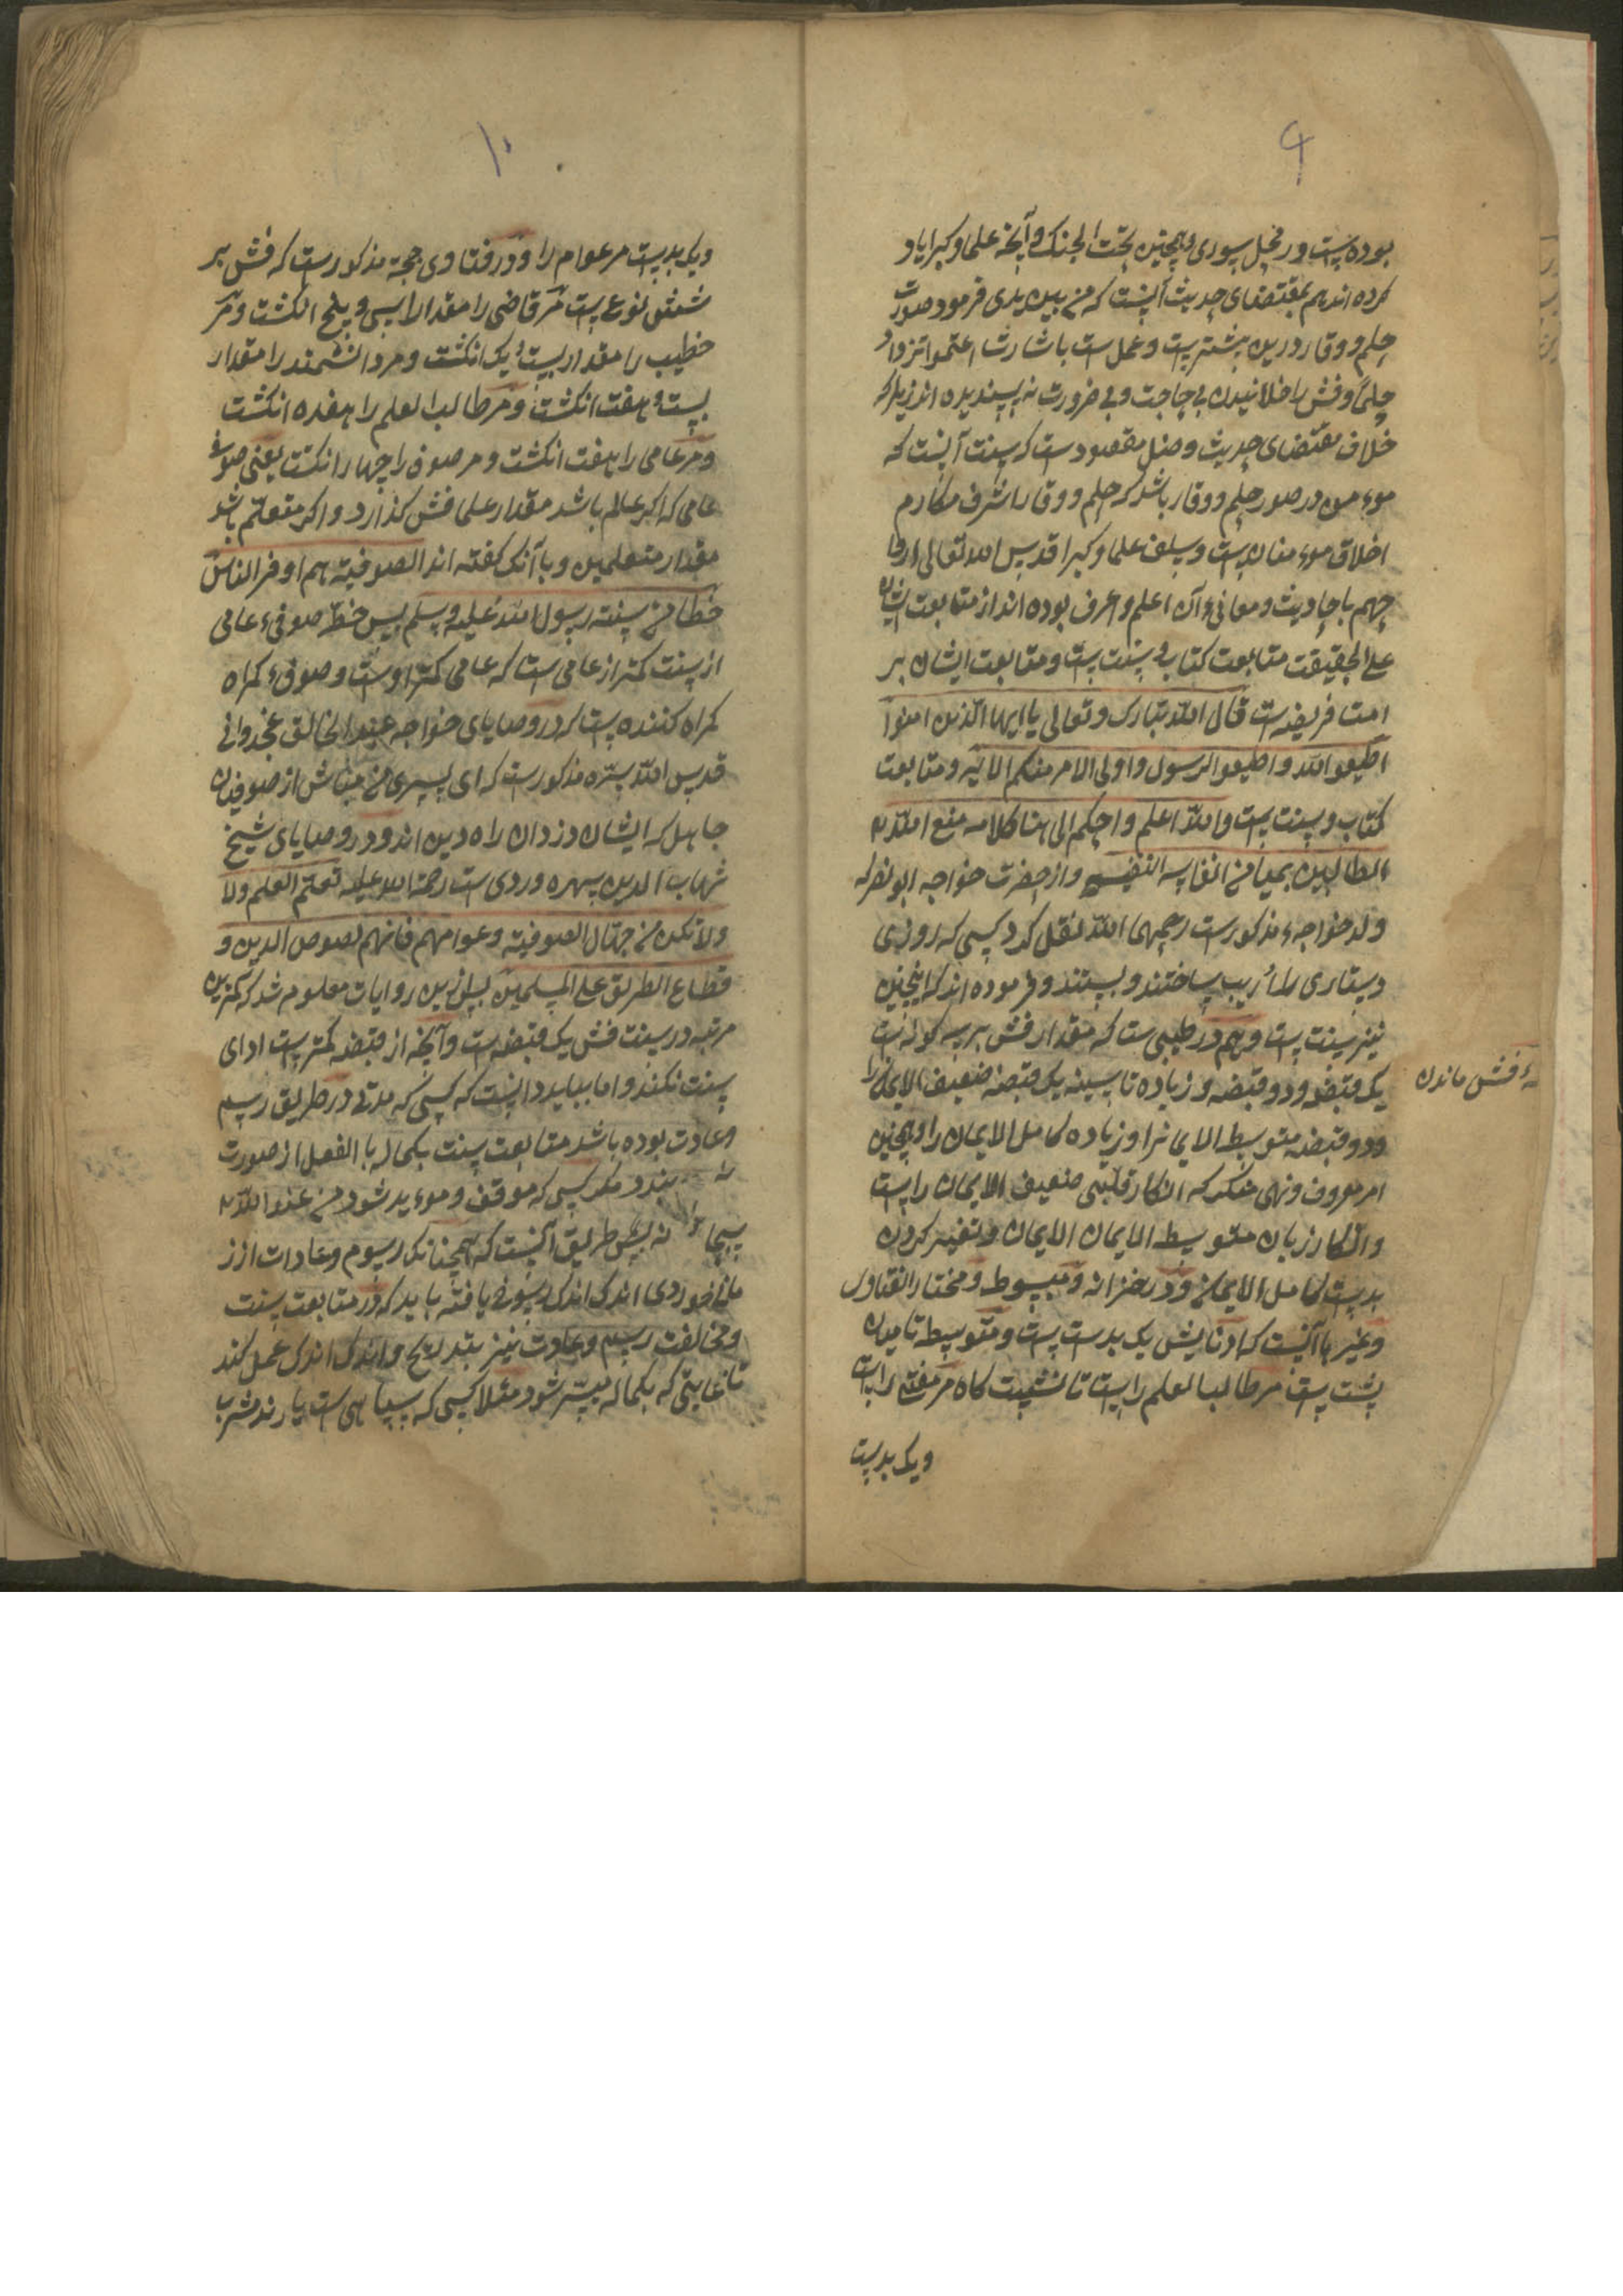 ۹
بوده است و در محل سواری و همچنین تحت الجنک و آنچه علما و کبرا یاد
کرده اند هم بمقتضای حدیث آنست که من بین یدی فرمود صورت
حلم و وقار درین بیشترست و عمل ست باشارت اعتموا تزدادوا
حلما و فش را خلانیدن بی حاجت و بی ضرورت نه پسندیده اند زیرا که
خلاف مقتضای حدیث و مقصودست که سنت آنست که
موءمن در صور حلم و وقار باشد که حلم و وقار اشرف مکارم
اخلاق موءمنان است و سلف علما و کبرا قدس الله تعالی ارواحهم
باحادیث و معانیء آن اعلم و اعرف بوده اند از متابعت ایشان
علی الحقیقت متابعت کتاب و سنت است و متابعت ایشان بر
امت فریضه است قال الله تبارک و تعالی یا ایها الذین امنوا
اطیعوا الله و اطیعوا الرسول و اولی الامر منکم الآیه و متابعت
کتاب و سنت است والله اعلم و احکم الی هنا کلامه متع الله
الطالبین بمیامن انفاسه النفیسه و از حضرت خواجه ابو نصر که
ولد خواجهء مذکورست رحمهما الله نقل کرد کسی که روزی
دستاری را اریب ساختند و بستند و فرموده اند که اینچنین
نیز سنت است و هم در طیبی ست که مقدار فش بر سه کونه است
یک قبضه و دو قبضه و زیاده تا سینه یک قبضه ضعیف الایمان را
و دو قبضه متوسط الایمانرا و زیاده کامل الایمان را و همچنین
امر معروف و نهی منکر که انکار قلبی ضعیف الایمان راست
و انکار زبان متوسط الایمان و تغییر کردن
بدست کامل الایمان و در خزانه و مبسوط و مختار الفتاوی
و غیرها آنست که ادنایش یک بدست است و متوسطه تا میان
پشت است مر طالب العلم راست تا نشست کاه مر مفتی راست
و یک بدست
ـهء فش ماندن
۱۰
و یک بدست مر عوام را و در فتاوی حجه مذکورست که فش بر
شش نوع است مر قاضی را مقدار سی و پنج انکشت و مر
خطیب را مقدار بیست و یک انکشت و مر دانشمند را مقدار
بیست و هفت انکشت و مر طالب العلم را هفده انکشت
و مر عامی را هفت انکشت و مر صوفی را چهار انکشت یعنی صوفیء
عامی که اکر عالم باشد مقدار علما فش کذارد و اکر متعلم باشد
مقدار متعلمین و با آنک کفته اند الصوفیة هم اوفر الناس
حظا من سنة رسول الله علیه و سلم پس حظ صوفیء عامی
از سنت کمتر از عامی ست که عامی کمتر اوست و صوفیء کمراه
کمراه کننده است که در وصایای خواجه عبد الخالق غجدوانی
قدس الله سره مذکورست که ای پسری من مباش از صوفیان
جاهل که ایشان دزدان راه دین اند و در وصایای شیخ
شهاب الدین سهروردی ست رحمة الله علیه تعلم العلم ولا
ولا تکن من جهال الصوفیة و عوامهم فانهم لصوص الدین و
قطاع الطریق علی المسلمین پس ازین روایات معلوم شد که کمترین
مرتبه در سنت فش یک قبضه است و آنچه از قبضه کمترست ادای
سنت نکند و اما بباید دانست که کسی که مدتی در طریق رسم
و عادت بوده باشد متابعت سنت بکماله بالفعل از صورت
نه بندد مکر کسی که موفق و موءید شود من عند الله
سبحا نه پس طریق آنست که همچنانک رسوم و عادات از ز
مان خوردی اندک اندک رسوخ یافته باید که در متابعت سنت
و مخالفت رسم و عادت نیز بتدریج و اندک اندک عمل کند
تا غایتی که بکماله میسر شود مثلا کسی که سپاهی ست یا رند مشرب